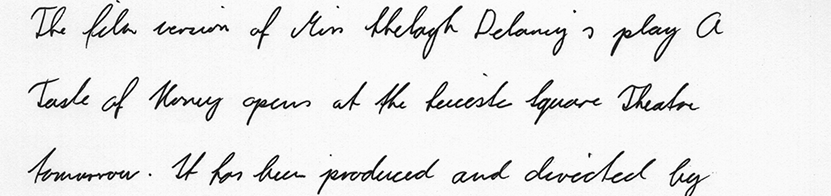 The film version of Miss Shelagh Delaney's play A
Taste of Honey opens at the Leicester Square Theatre
tomorrow. It has been produced and directed by